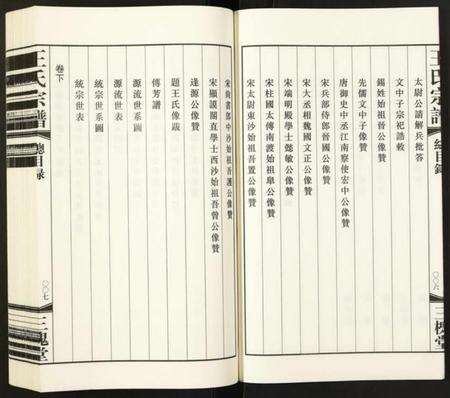 王氏宗譜
總目錄
〇〇六
三槐堂
太尉公請解兵批答
文中子宗祀誥敕
錫姓始祖晉公像贊
先儒文中子像贊
唐御史中丞江南察使宏中公像贊
宋兵部侍郎晉國公像贊
宋大丞相魏國文正公像贊
宋端明殿學士懿敏公像贊
宋柱國太傅南渡始祖皋公像贊
宋太尉東沙始祖吾置公像贊
宋尚書郎中沙始祖吾護公像贊
宋顯謨閣直學士西沙始祖吾曾公像贊
逢源公像贊
題王氏像跋
傳芳譜
源流世系圖
源流世表
統宗世系圖
統宗世表
卷下
王氏宗譜
總目錄
〇〇七
三槐堂